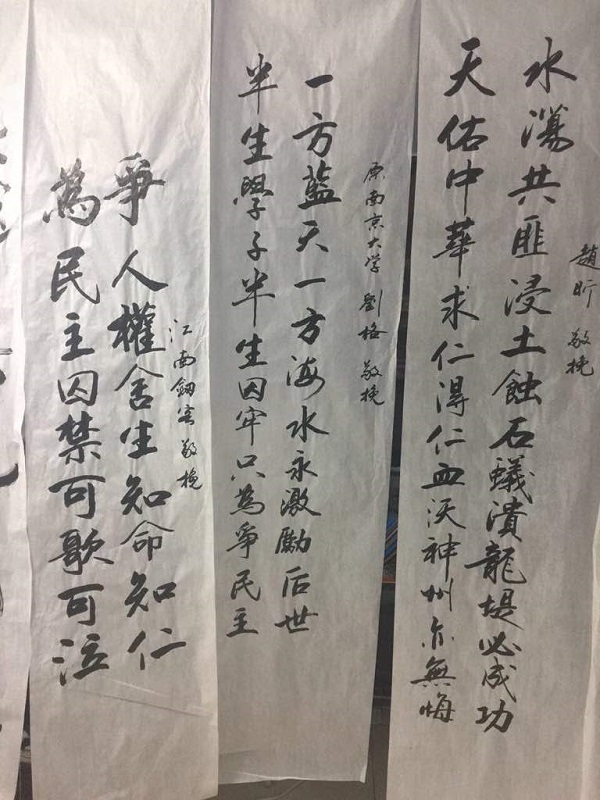 趙昕 敬挽
水共匪浸土蝕石蟻潰龍堤必成功
天佑中華求仁得仁血沃神州亦無悔
原南京大学 劉格 敬挽
一方藍天一方海水永激勵后世
半生學子半生囚牢只為爭民主
江南釼客敬挽
爭人權舍生知命知仁
為民主囚禁可歌可泣